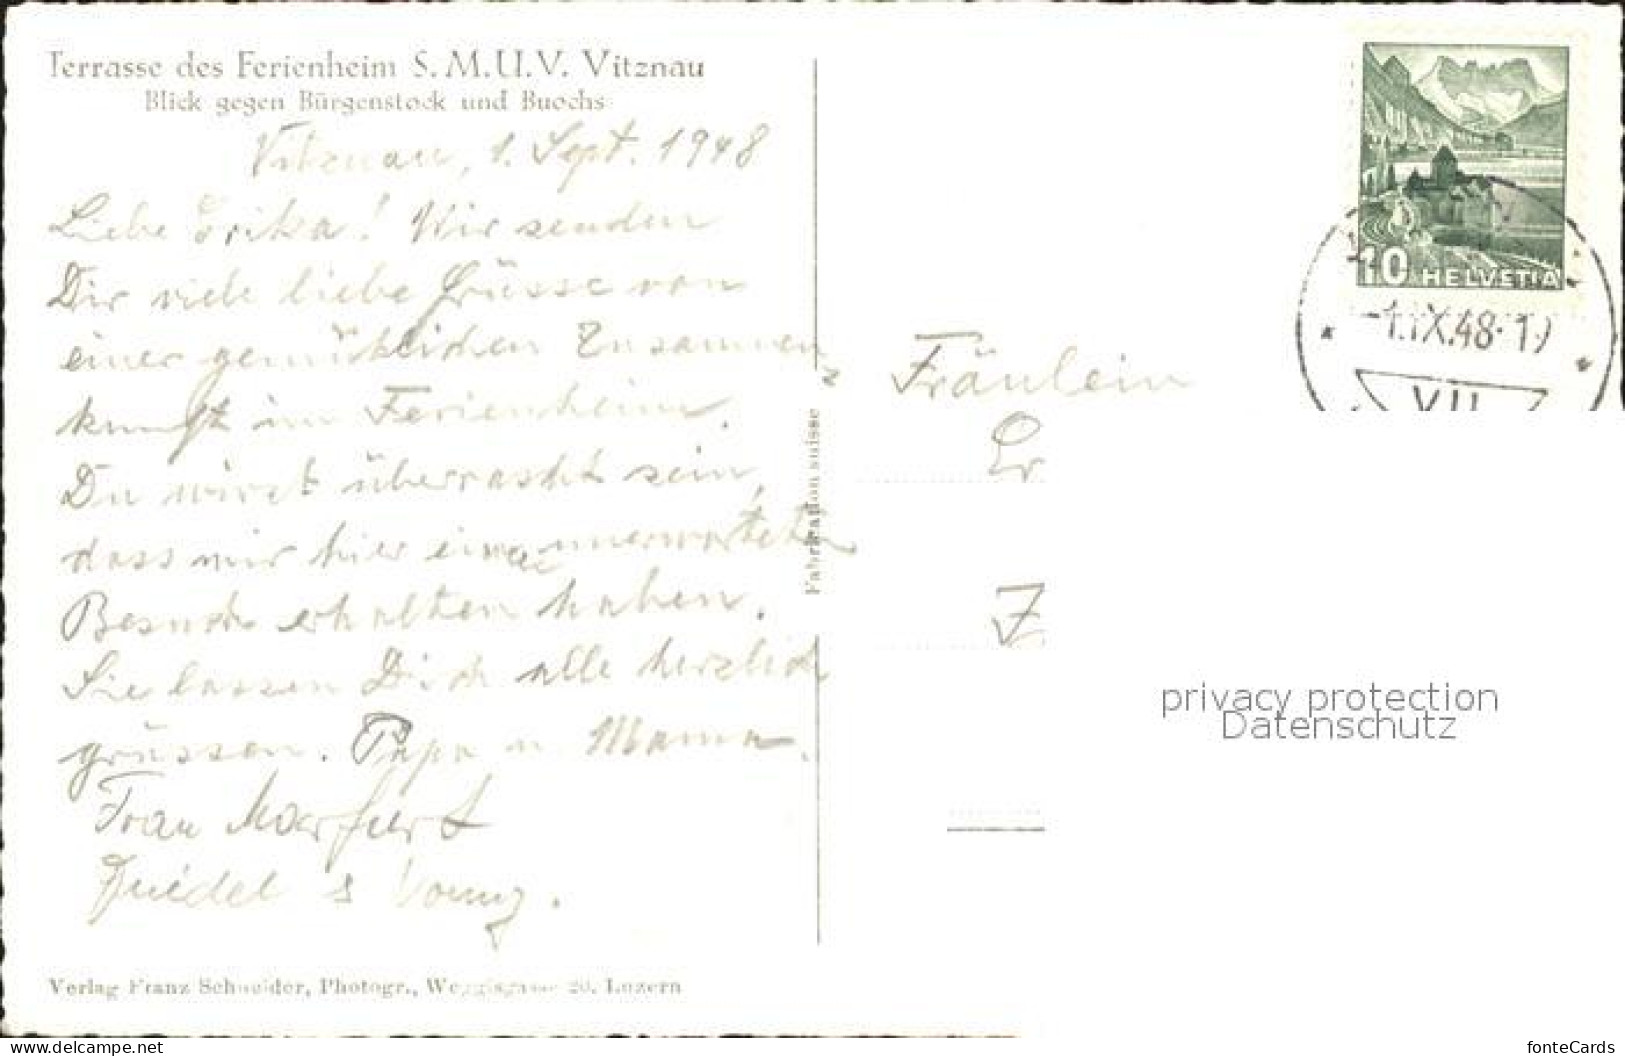 Terrasse des Ferienheim S.M.U.V. Vitznau
Blick gegen Bürgenstock und Buochs
Vitznau, 1. Sept. 1948
Liebe Erika! Wir senden
Dir viele liebe Grüsse von
einer gemütlichen Zusammen
kunft im Ferienheim.
Du wirst überrascht sein,
dass wir hier einen unerwarteten
Besuch erhalten haben.
Sie lassen Dich alle herzlich
grüssen. Papa u. Mama.
Frau
Verlag Franz Schneider, Photogr., Weggisgasse 20, Luzern
Fabrication suisse
10 HELVETIA
-1.IX.48-19
VII
Fräulein
Er
Z
privacy protection
Datenschutz
www.delcampe.net
fonteCards